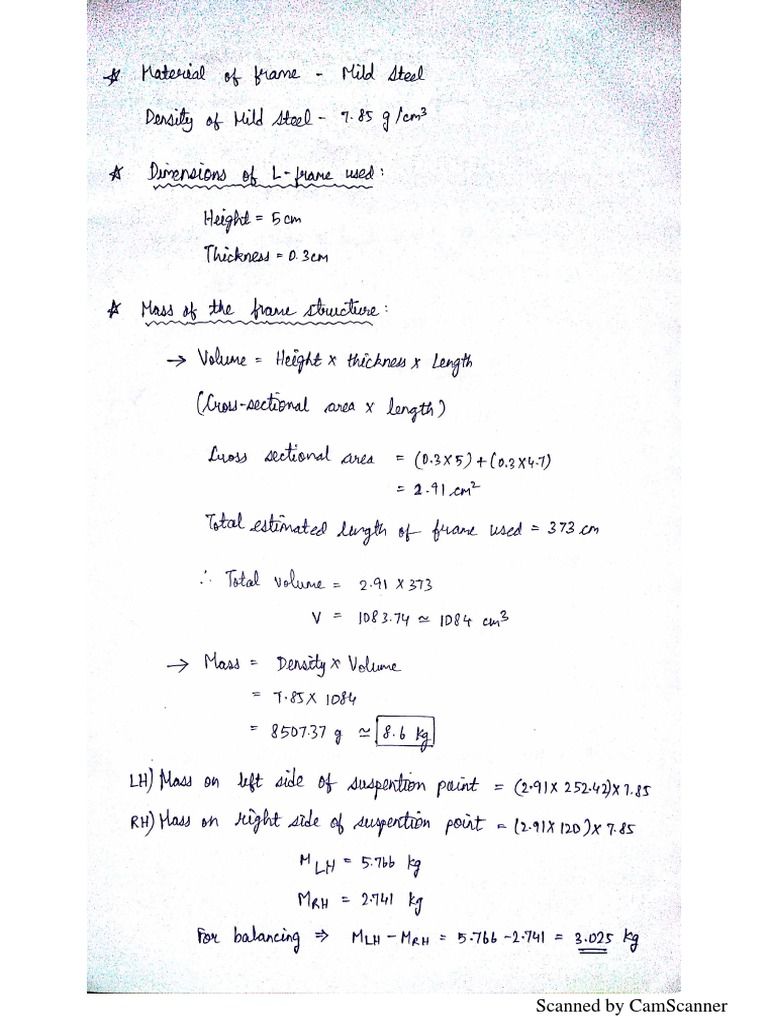 ☆ Material of frame - Mild Steel
Density of Mild Steel - 7.85 g/cm³
☆ Dimensions of L-frame used:
Height = 5cm
Thickness = 0.3cm
☆ Mass of the frame structure:
→ Volume = Height x thickness x Length
(Cross-sectional area x length)
Cross sectional area = (0.3x5)+(0.3x4.7)
= 2.91 cm²
Total estimated length of frame used = 373 cm
∴ Total volume = 2.91 x 373
V = 1083.74 ≃ 1084 cm³
→ Mass = Density x Volume
= 7.85 x 1084
= 8507.37 g ≃ 8.6 kg
LH) Mass on left side of suspention point = (2.91 x 252.42) x 7.85
RH) Mass on right side of suspention point = (2.91 x 120) x 7.85
M LH = 5.766 kg
MRH = 2.741 kg
For balancing ⇒ MLH - MRH = 5.766 - 2.741 = 3.025 kg
Scanned by CamScanner